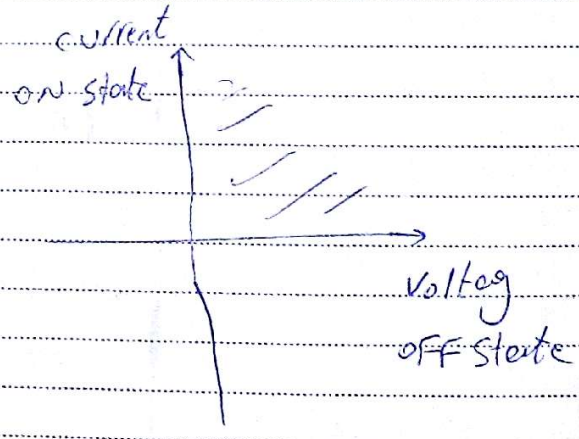 current
ON state
Voltag
OFF state